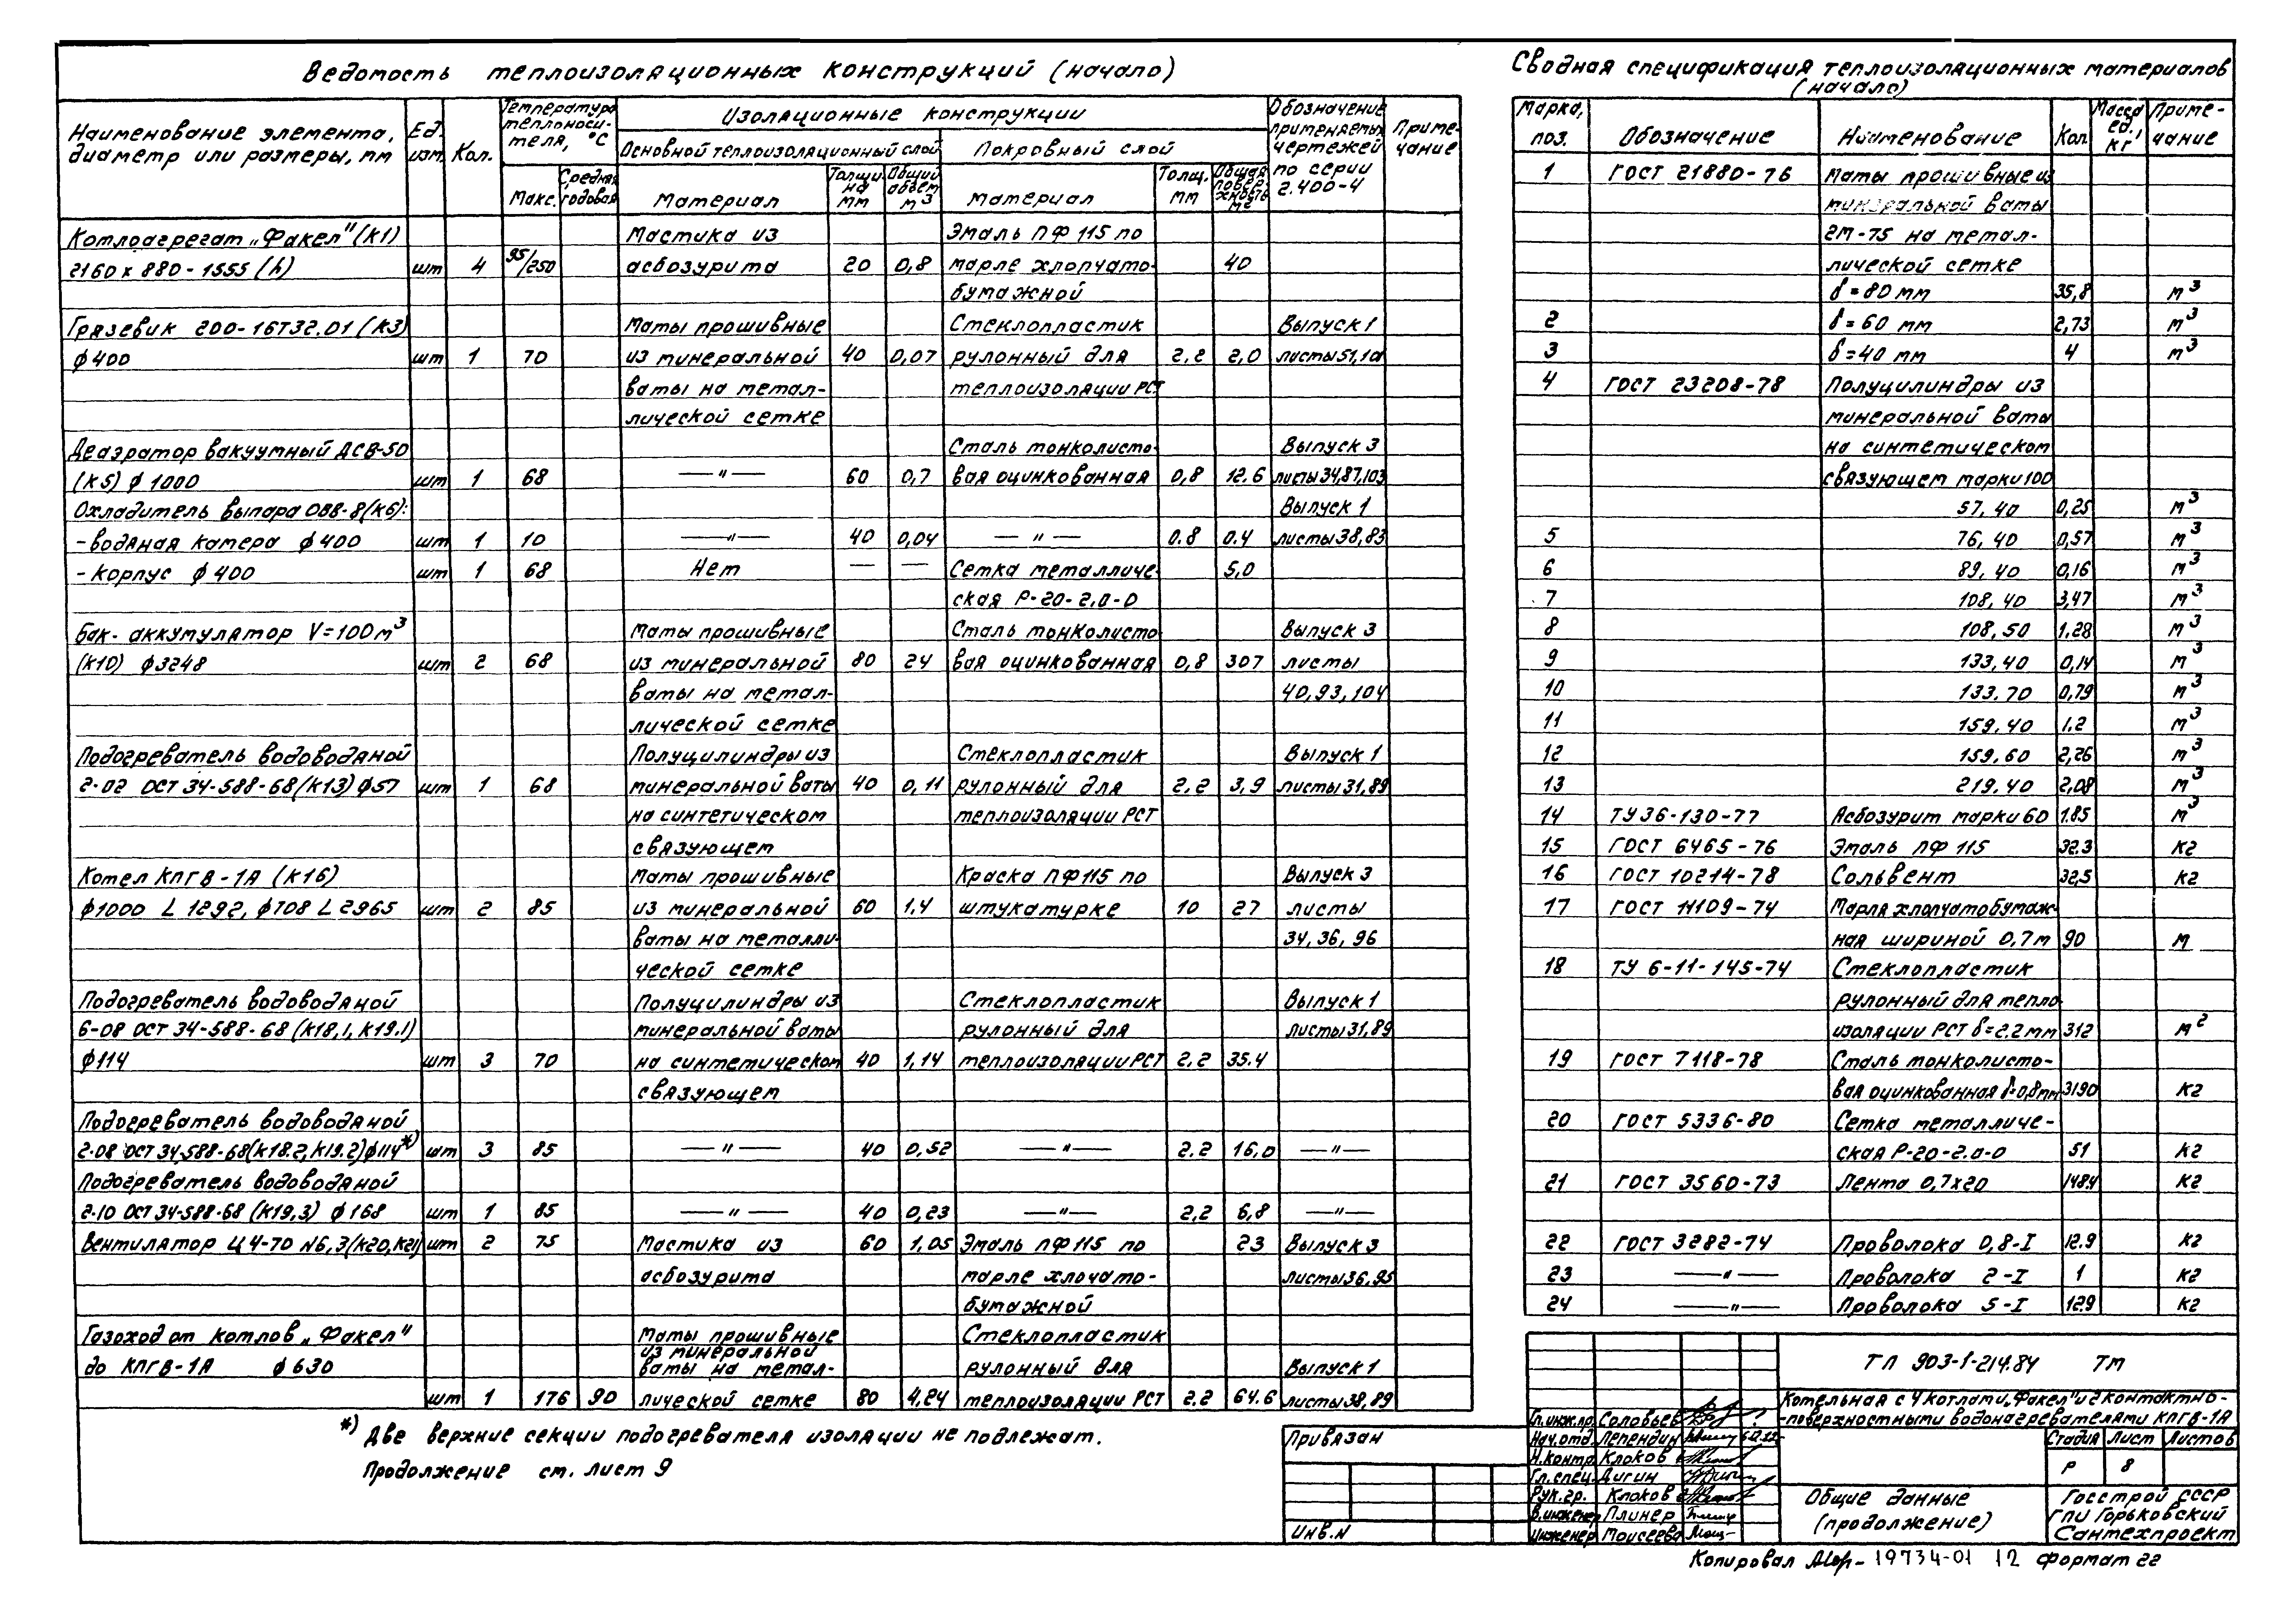 Ведомость теплоизоляционных конструкций (начало)
Наименование элемента, диаметр или размеры, мм
Ед. изм.
Кол.
Температура теплоноси-теля, °С
Макс.
Средняя годовая
Изоляционные конструкции
Основной теплоизоляционный слой
Покровный слой
Материал
Толщи на мм
Общий объем м3
Материал
Толщ. мм
Общая повер хность м2
Обозначение применяемых чертежей по серии 2.400-4
Приме-чание
Котлоагрегат „Факел" (К1) Мастика из Эмаль ПФ 115 по
2160 х 880 - 1555 (h) шт 4 95/250 асбозурита 20 0,8 марле хлопчато- 40
бумажной
Грязевик 200-16Т32.01 (К3) Маты прошивные Стеклопластик Выпуск 1
ф 400 шт 1 70 из минеральной 40 0,07 рулонный для 2,2 2,0 листы 51,101
ваты на метал- теплоизоляции РСТ
лической сетке
Деаэратор вакуумный ДСВ-50 Сталь тонколисто- Выпуск 3
(К5) ф 1000 шт 1 68 —"— 60 0,7 вая оцинкованная 0,8 12.6 листы 34,87,103
Охладитель выпара ОВВ-8 (К6): Выпуск 1
- водяная камера ф 400 шт 1 10 —"— 40 0,04 —"— 0.8 0.4 листы 38,83
- корпус ф 400 шт 1 68 Нет — — Сетка металличе- 5,0
ская Р-20-2,0-0
Бак-аккумулятор V=100м3 Маты прошивные Сталь тонколисто- Выпуск 3
(К10) ф3248 шт 2 68 из минеральной 80 24 вая оцинкованная 0,8 307 листы
ваты на метал- 40, 93, 104
лической сетке
Подогреватель водоводяной Полуцилиндры из Стеклопластик Выпуск 1
2-02 ОСТ 34-588-68 (К13) ф57 шт 1 68 минеральной ваты 40 0,11 рулонный для 2,2 3,9 листы 31,89
на синтетическом теплоизоляции РСТ
связующем
Котел КПГВ-1А (К16) Маты прошивные Краска ПФ115 по Выпуск 3
ф1000 L 1292, ф708 L 2965 шт 2 85 из минеральной 60 1,4 штукатурке 10 27 листы
ваты на металли- 34, 36, 96
ческой сетке
Подогреватель водоводяной Полуцилиндры из Стеклопластик Выпуск 1
6-08 ОСТ 34-588-68 (К18,1, К19.1) минеральной ваты рулонный для листы 31,89
ф114 шт 3 70 на синтетическом 40 1,14 теплоизоляции РСТ 2,2 35.4
связующем
Подогреватель водоводяной
2-08 ОСТ 34-588-68 (К18.2, К19.2) ф114*) шт 3 85 —"— 40 0,52 —"— 2.2 16,0 —"—
Подогреватель водоводяной
2-10 ОСТ 34-588-68 (К19,3) ф 168 шт 1 85 —"— 40 0,23 —"— 2,2 6,8 —"—
Вентилятор Ц 4-70 N6,3 (К20, К21) шт 2 75 Мастика из 60 1,05 Эмаль ПФ115 по 23 Выпуск 3
асбозурита марле хлочато- листы 36,95
бумажной
Газоход от котлов „Факел" Маты прошивные Стеклопластик
из минеральной
до КПГВ-1А ф 630 ваты на метал- рулонный для Выпуск 1
шт 1 176 90 лической сетке 80 4,24 теплоизоляции РСТ 2.2 64.6 листы 38,89
*) Две верхние секции подогревателя изоляции не подлежат.
Продолжение см. лист 9
Сводная спецификация теплоизоляционных материалов
(начало)
Марка, поз.
Обозначение
Наименование
Кол.
Масса ед., кг
Приме-чание
1 ГОСТ 21880-76 Маты прошивные из
минеральной ваты
2М-75 на метал-
лической сетке
δ=80 мм 35,8 м3
2 δ=60 мм 2,73 м3
3 δ=40 мм 4 м3
4 ГОСТ 23208-78 Полуцилиндры из
минеральной ваты
на синтетическом
связующем марки 100
57, 40 0,25 м3
5 76, 40 0,57 м3
6 89, 40 0,16 м3
7 108, 40 3,47 м3
8 108, 50 1,28 м3
9 133, 40 0,14 м3
10 133. 70 0,79 м3
11 159, 40 1.2 м3
12 159, 60 2,26 м3
13 219, 40 2,08 м3
14 ТУ 36-130-77 Асбозурит марки 60 1.85 м3
15 ГОСТ 6465-76 Эмаль ПФ 115 32.3 кг
16 ГОСТ 10214-78 Сольвент 32,5 кг
17 ГОСТ 11109-74 Марля хлопчатобумаж-
ная шириной 0,7м 90 м
18 ТУ 6-11-145-74 Стеклопластик
рулонный для тепло-
изоляции РСТ δ=2.2мм 312 м2
19 ГОСТ 7118-78 Сталь тонколисто-
вая оцинкованная δ=0,8мм 3190 кг
20 ГОСТ 5336-80 Сетка металличе-
ская Р-20-2.0-0 51 кг
21 ГОСТ 3560-73 Лента 0,7х20 148.4 кг
22 ГОСТ 3282-74 Проволока 0,8-I 12.9 кг
23 —"— Проволока 2-I 1 кг
24 —"— Проволока 5-I 129 кг
ТП 903-1-214.84 ТМ
Котельная с 4 котлами „Факел" и 2 контактно-
-поверхностными водонагревателями КПГВ-1А
Гл.инж.пр. Соловьев
Нач.отд. Лепендин
Н.контр. Клоков
Гл.спец. Дигин
Рук.гр. Клоков
В.инженер Плинер
Инженер Моисеева
Стадия Лист Листов
Р 8
Общие данные
(продолжение)
Госстрой СССР
ГПИ Горьковский
Сантехпроект
Привязан
Инв.N
Копировал 19734-01 12 Формат 22